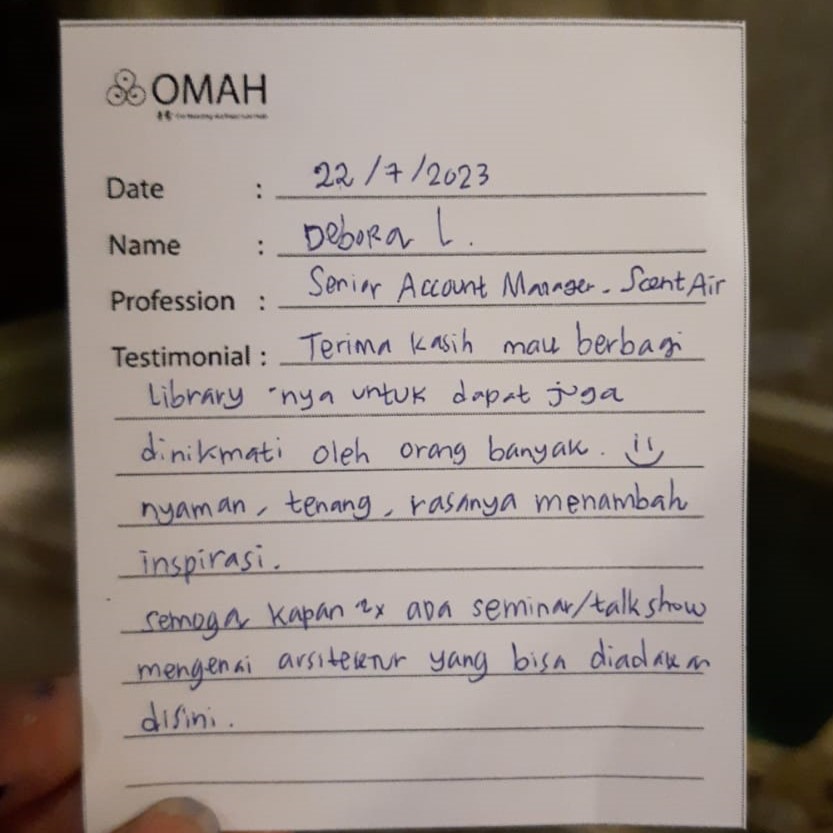 OMAH
Date : 22/7/2023
Name : Debora L.
Profession : Senior Account Manager - ScentAir
Testimonial : Terima kasih mau berbagi
library -nya untuk dapat juga
dinikmati oleh orang banyak. ii
nyaman, tenang, rasanya menambah
inspirasi.
semoga kapan 2x ada seminar/talkshow
mengenai arsitektur yang bisa diadakan
disini.